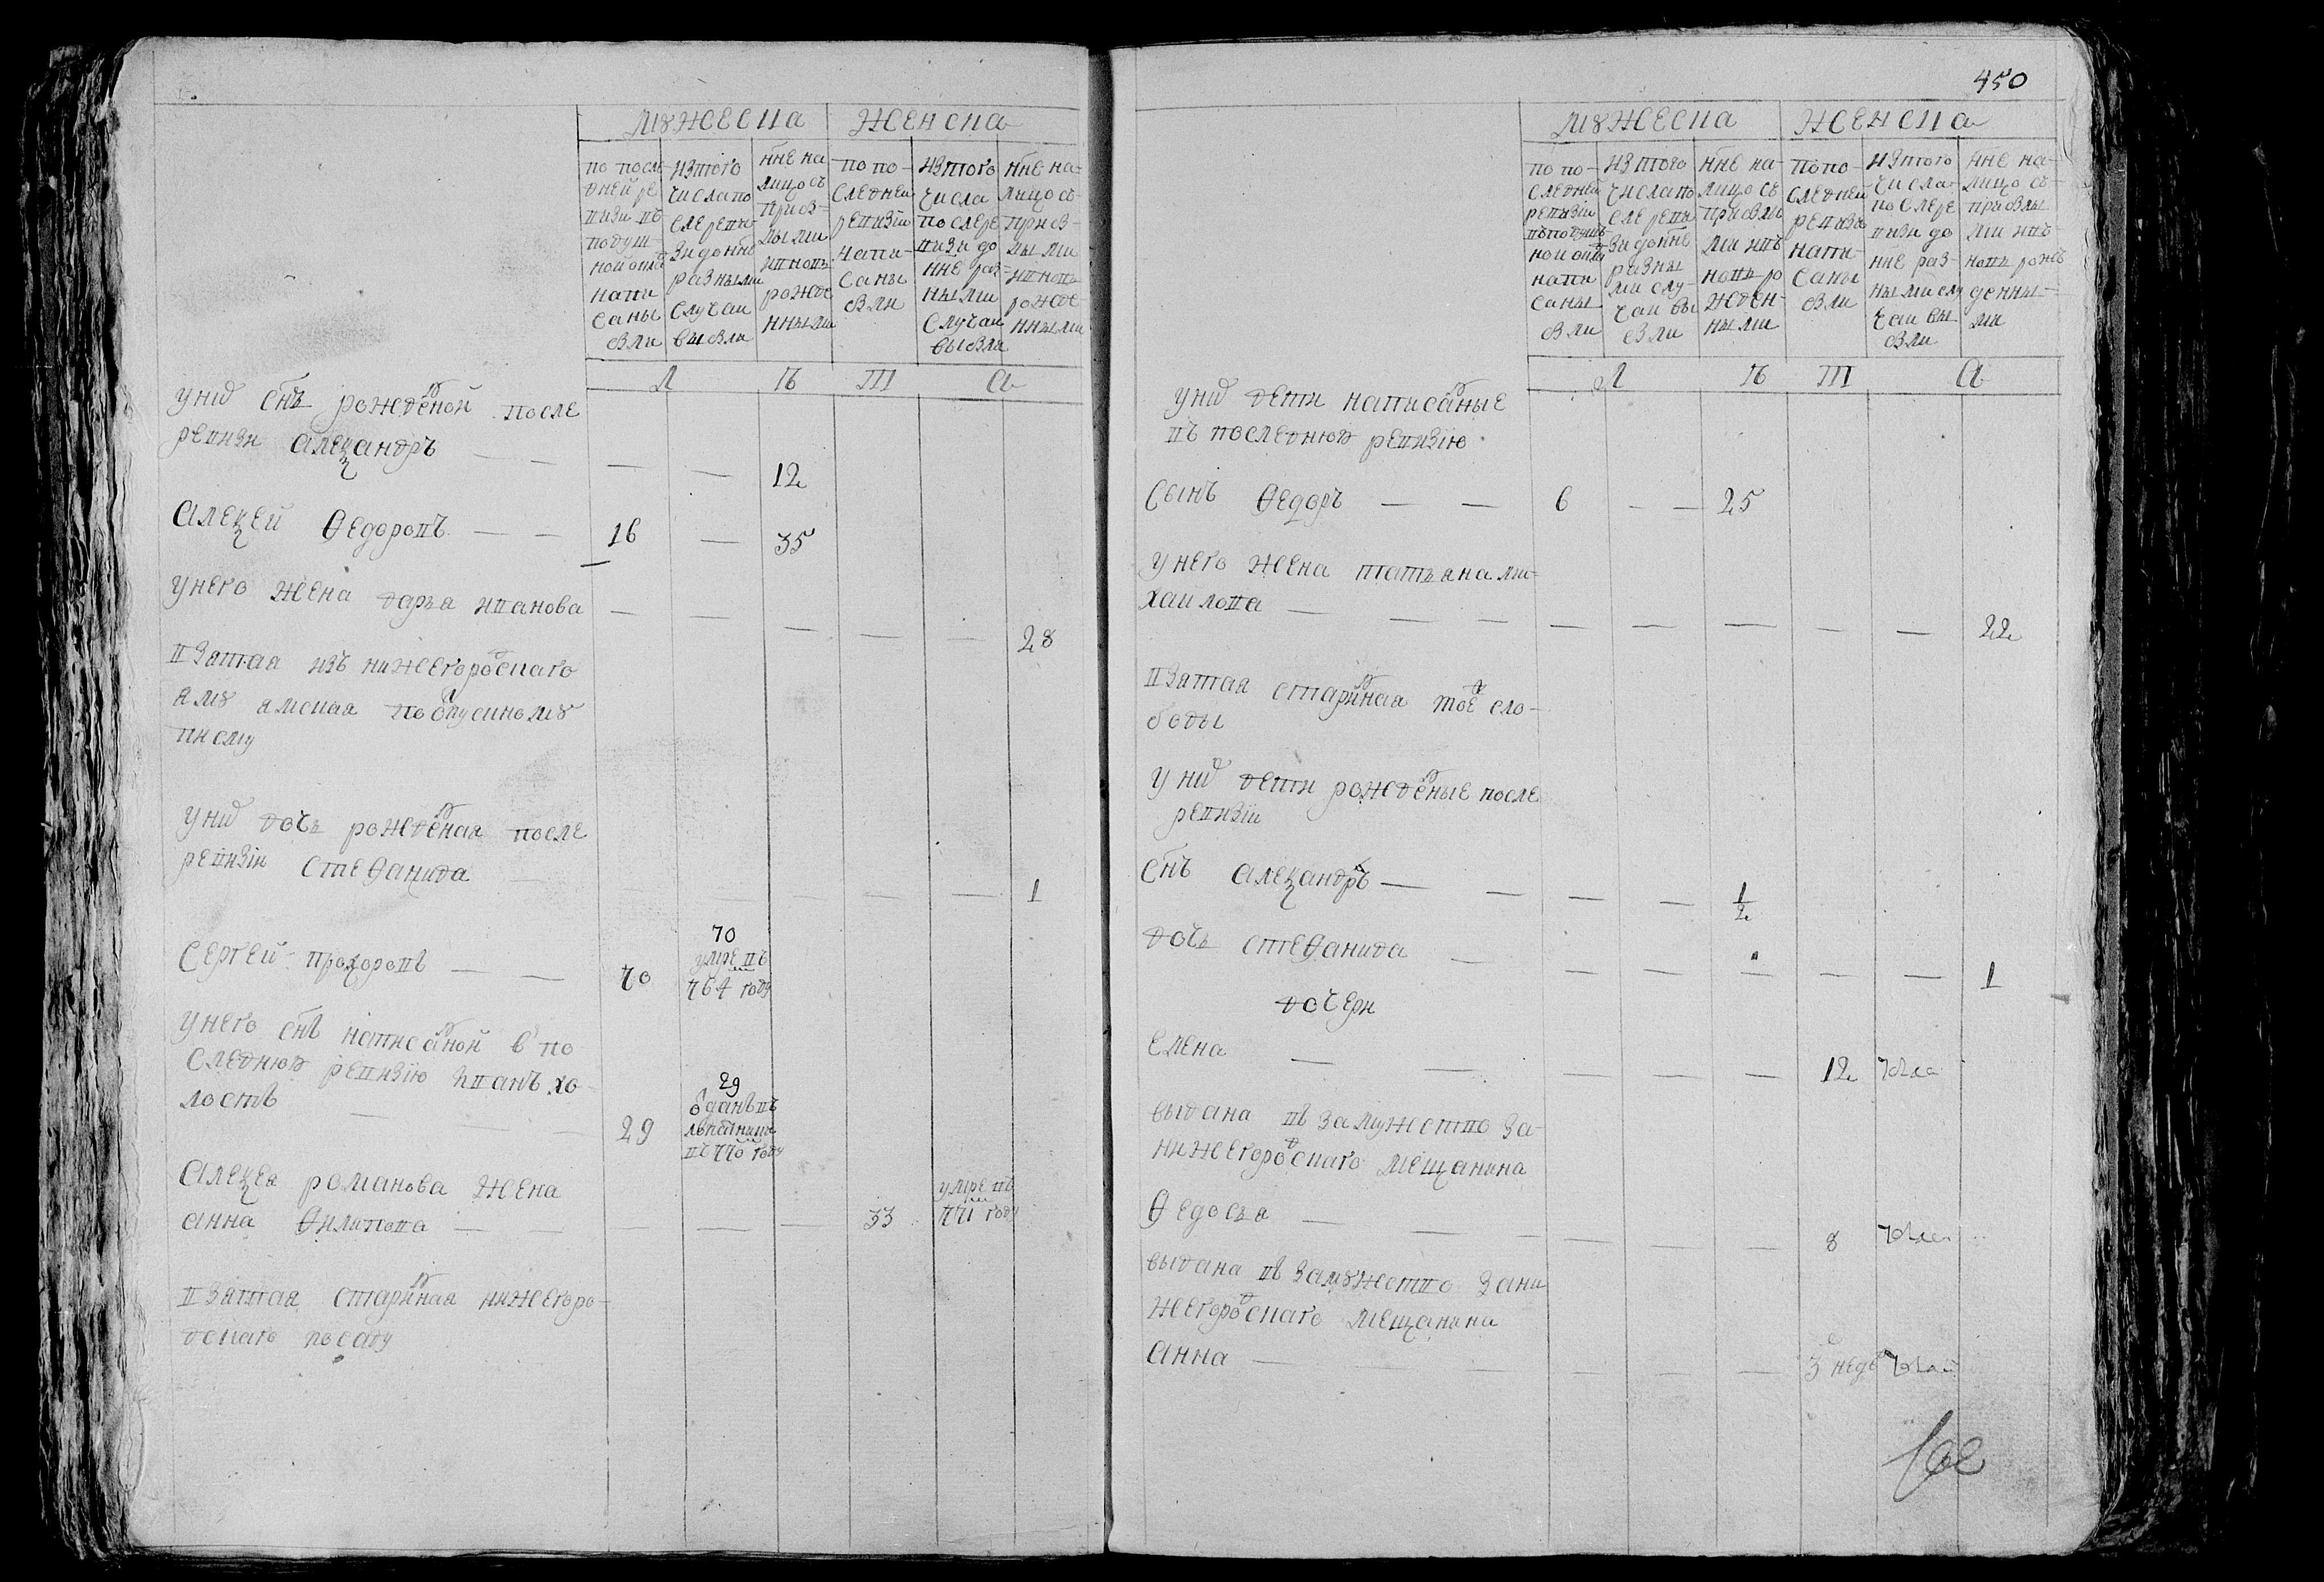 мужеска женска
по после
дней ре
визи въ
подуш
ной окла
напи
саны
были
изтого
числа по
сле реви
зи до нне
разными
случаи
выбыли
нне на
лицо съ
прибы
лыми
и вновь
рожде
нными
по по-
следнеи
ревизiи
напи-
саны
были
изтого
числа
после ре
визи до
нне раз-
ными
случаи
выбыли
нне на-
лицо съ-
прибы-
лыми
и вновь
рожде
нными
Л Ѣ Т А
у них снъ рожденой после
ревизи алеѯандръ — — — — 12
Алеѯей Ѳедоровъ — — 16 — 35
у него жена дарья иванова — — — — — 28
взятая изъ нижегородскаго
яму ямская по отпускному
писму
у них дочь рожденая после
ревизiи стеѳанида — — — — — 1
70
Сергей прохоровъ — — 70 умре въ
764 году
у него снъ написаной в по
следнюю ревизiю иванъ хо-
лостъ — — — 29
29
отданъ въ
рекруты
въ 770 году
Алеѯея романова жена
анна Ѳилипова — — — — 33 умре въ
771 году
взятая старинная нижегоро-
дскаго посаду
450
мужеска женска
по по-
следней
ревизiи
въ подуш
ной окла
напи
саны
были
изтого
числа по
сле реви
зи до нне
разны
ми слу-
чаи вы
были
нне на-
лицо съ
прибылы
ми и въ
новь ро
жден-
ными
по по-
следней
ревизiи
напи-
саны
были
изтого
числа
после ре
визи до
нне раз-
ными слу
чаи вы
были
нне на-
лицо съ-
прибылы
ми и въ-
новь рож
денны-
ми
Л Ѣ Т А
у них дети написаные
въ последнюю ревизiю
сынъ Ѳедоръ — — 6 — — 25
у него жена татьяна ми-
хаилова — — — — — — — — 22
взятая старинная тоe сло-
боды
у них дети рожденые после
ревизiи
снъ алеѯандръ — — — — 1/2
дочь стеѳанида — — — — — 1
дочери
елена — — — — — 12
выдана въ замужство за-
нижегородскаго мещанина
Ѳедосья — — — — — 8
выдана въ замужство за ни
жегородскаго мещанина
анна — — — — 3 неде